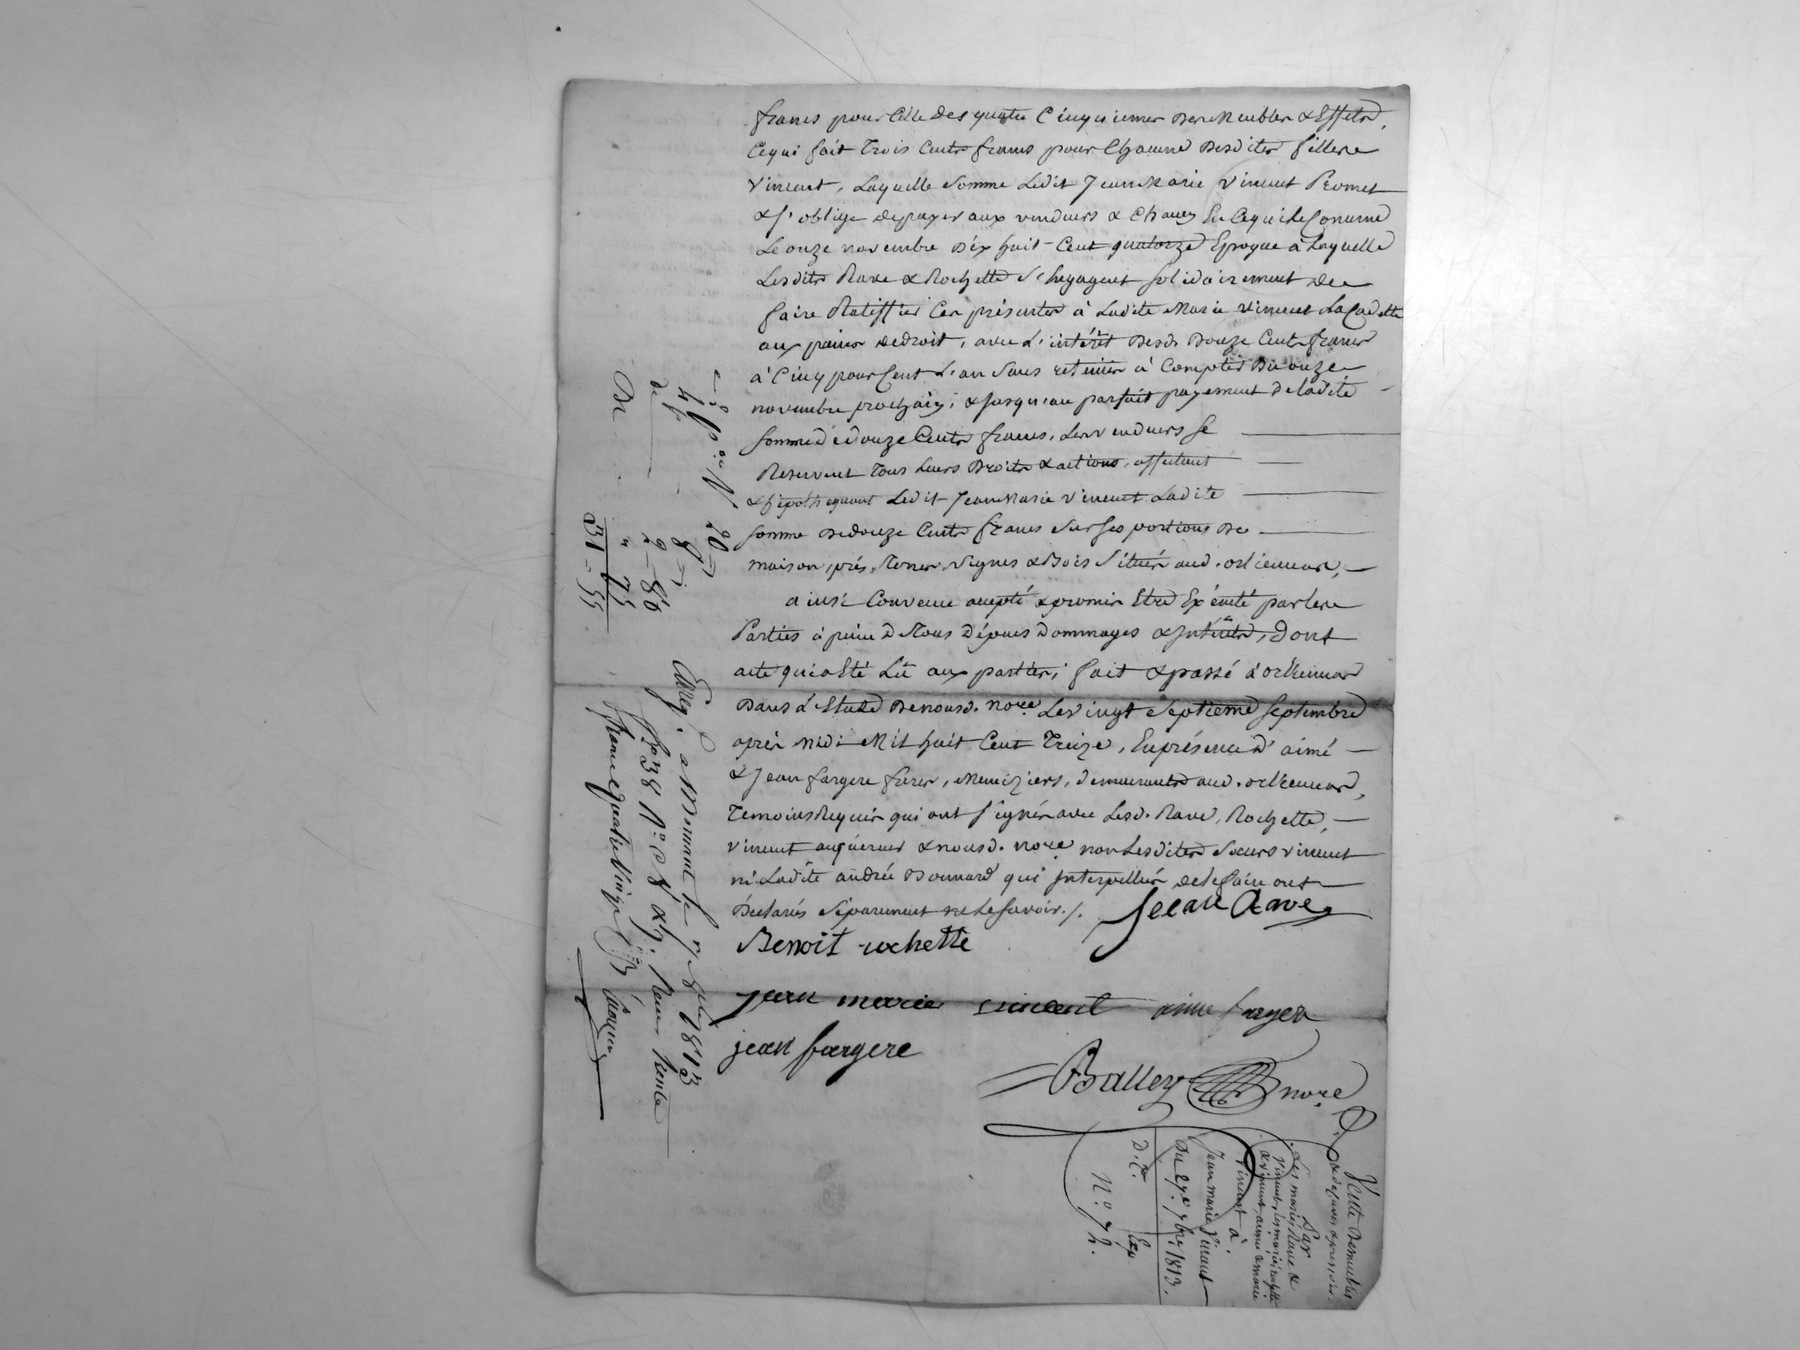 francs pour Celle des quatre Cinquiemes des Meubles & Effets,
Ce qui fait Trois Cents francs pour Chacune Desdites filles
Vincent, Laquelle Somme Ledit Jean Marie Vincent Promet
& s'oblige de payer aux vendeurs & Chacun En Ce qui le Concerne
Le onze novembre Dix huit Cent quatorze Epoque à Laquelle
Lesdits Rave & Rochette s'Engagent solidairement de
faire Ratiffier Ces présentes à Ladite Marie Vincent La Cadette
aux peines de droit, avec L'intérêt Desd. Douze Cents francs
à Cinq pour Cent L'an Sans retenue à Compter Du onze
novembre prochain, & Jusqu'au parfait payement de ladite
somme de douze Cents francs, Les vendeurs se
Reservent Tous Leurs Droits & actions, affectant
& hipothequant Ledit Jean Marie Vincent Ladite
somme De douze Cents francs Sur ses portions De
maison, prés, Terres, Vignes & Bois Situés aud. orliennas,
ainsi Convenu accepté & promis Etre Exécuté par les
Parties à peine de Tous Dépens Dommages & Intérêts, Dont
acte qui a Eté Lu aux parties; fait & passé à orliennas
Dans L'Etude De nousd. nore. Le vingt Septieme Septembre
après Midi Mil huit Cent Treize, En présence d'aimé
& Jean fargere freres, Menuiziers, demeurants aud. orliennas,
Temoins Requis qui ont signé avec Lesd. Rave, Rochette,
Vincent acquereur & nousd. nore. non Lesdites Soeurs Vincent
ni Ladite andrée Bonnard qui Interpellés de le faire ont
Déclarés Séparement ne Le savoir./. Jean Rave
Benoit rochette
jean marie vincent aimé fargere
jean fargere
Balley nore
De
31 = 55
Enreg. a Mornant le 7bre 1813
francs quatre vingt
Vente De meubles
Par
Les mariés Rave &
Vincent, Les mariés rochette
& Vincent, & marie
Vincent à
Jean marie Vincent
Du 27e 7bre 1813.
D. Er. Exp
N.o 72.